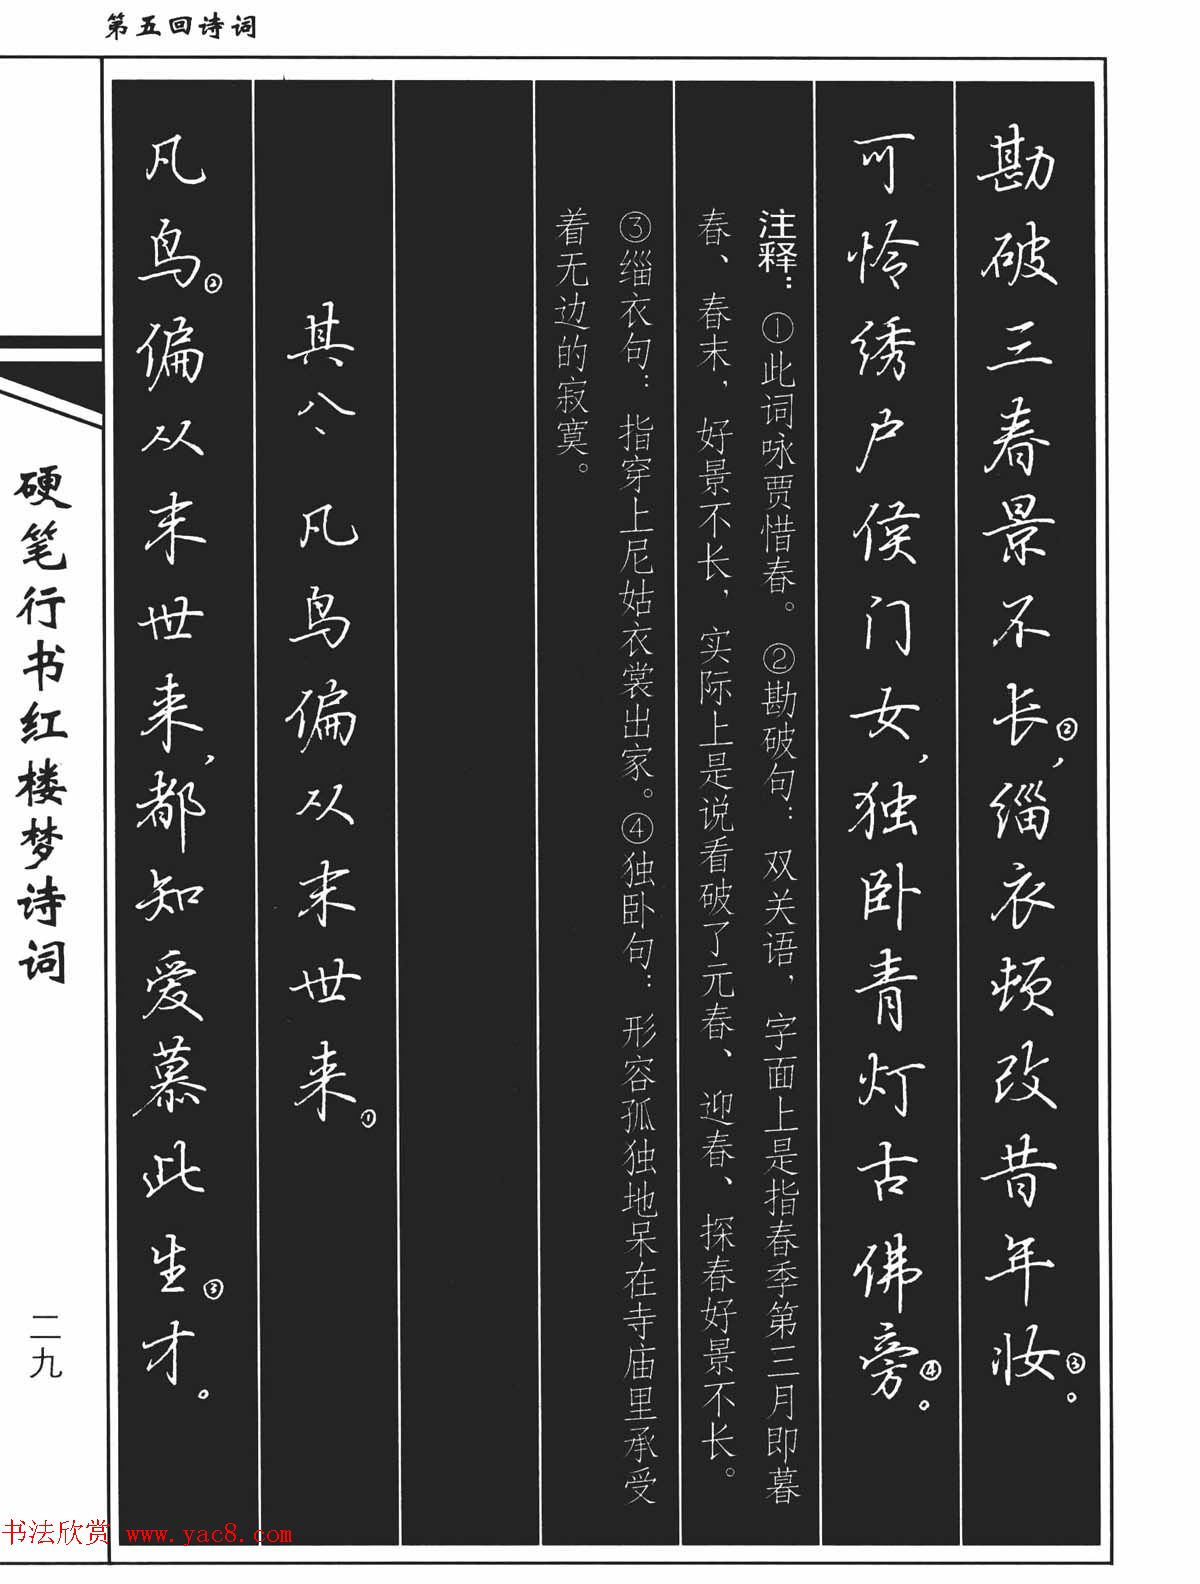 第五回诗词
勘破三春景不长②，缁衣顿改昔年妆③。
可怜绣户侯门女，独卧青灯古佛旁④。
注释：①此词咏贾惜春。②勘破句：双关语，字面上是指春季第三月即暮
春、春末，好景不长，实际上是说看破了元春、迎春、探春好景不长。
③缁衣句：指穿上尼姑衣裳出家。④独卧句：形容孤独地呆在寺庙里承受
着无边的寂寞。
其八、凡鸟偏从末世来①
凡鸟②偏从末世来，都知爱慕此生③才。
硬笔行书红楼梦诗词
二九
书法欣赏 www.yac8.com